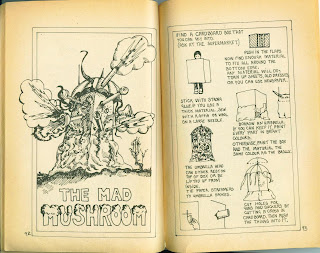 THE MAD
MUSHROOM
42
FIND A CARDBOARD BOX THAT
YOU CAN SIT INTO.
(ASK AT THE SUPERMARKET)
PUSH IN THE FLAPS
NOW FIND ENOUGH MATERIAL
TO FIT ALL AROUND THE
BOTTOM EDGE.
ANY MATERIAL WILL DO -
TORN UP SHEETS, OLD DRESSES
OR YOU CAN USE NEWSPAPER.
STICK WITH STRONG
GLUE. IF YOU USE A
THICK MATERIAL, SEW
WITH RAFFIA OR WOOL
ON A LARGE NEEDLE.
BORROW AN UMBRELLA.
IF YOU CAN KEEP IT, PAINT
EVERY PART IN BRIGHT
COLOURS.
OTHERWISE, PAINT THE BOX
AND THE MATERIAL THE
SAME COLOUR AS THE BROLLY.
THE UMBRELLA HEAD
CAN EITHER REST ON
TOP OF BOX OR BE
LIFTED UP FROM
INSIDE.
TIE PAPER STREAMERS
TO UMBRELLA SPOKES.
CUT HOLES FOR
ARMS AND SUCKERS BY
CUTTING A CROSS IN
CARDBOARD, THEN PUSH
THE THINGS INTO IT.
43